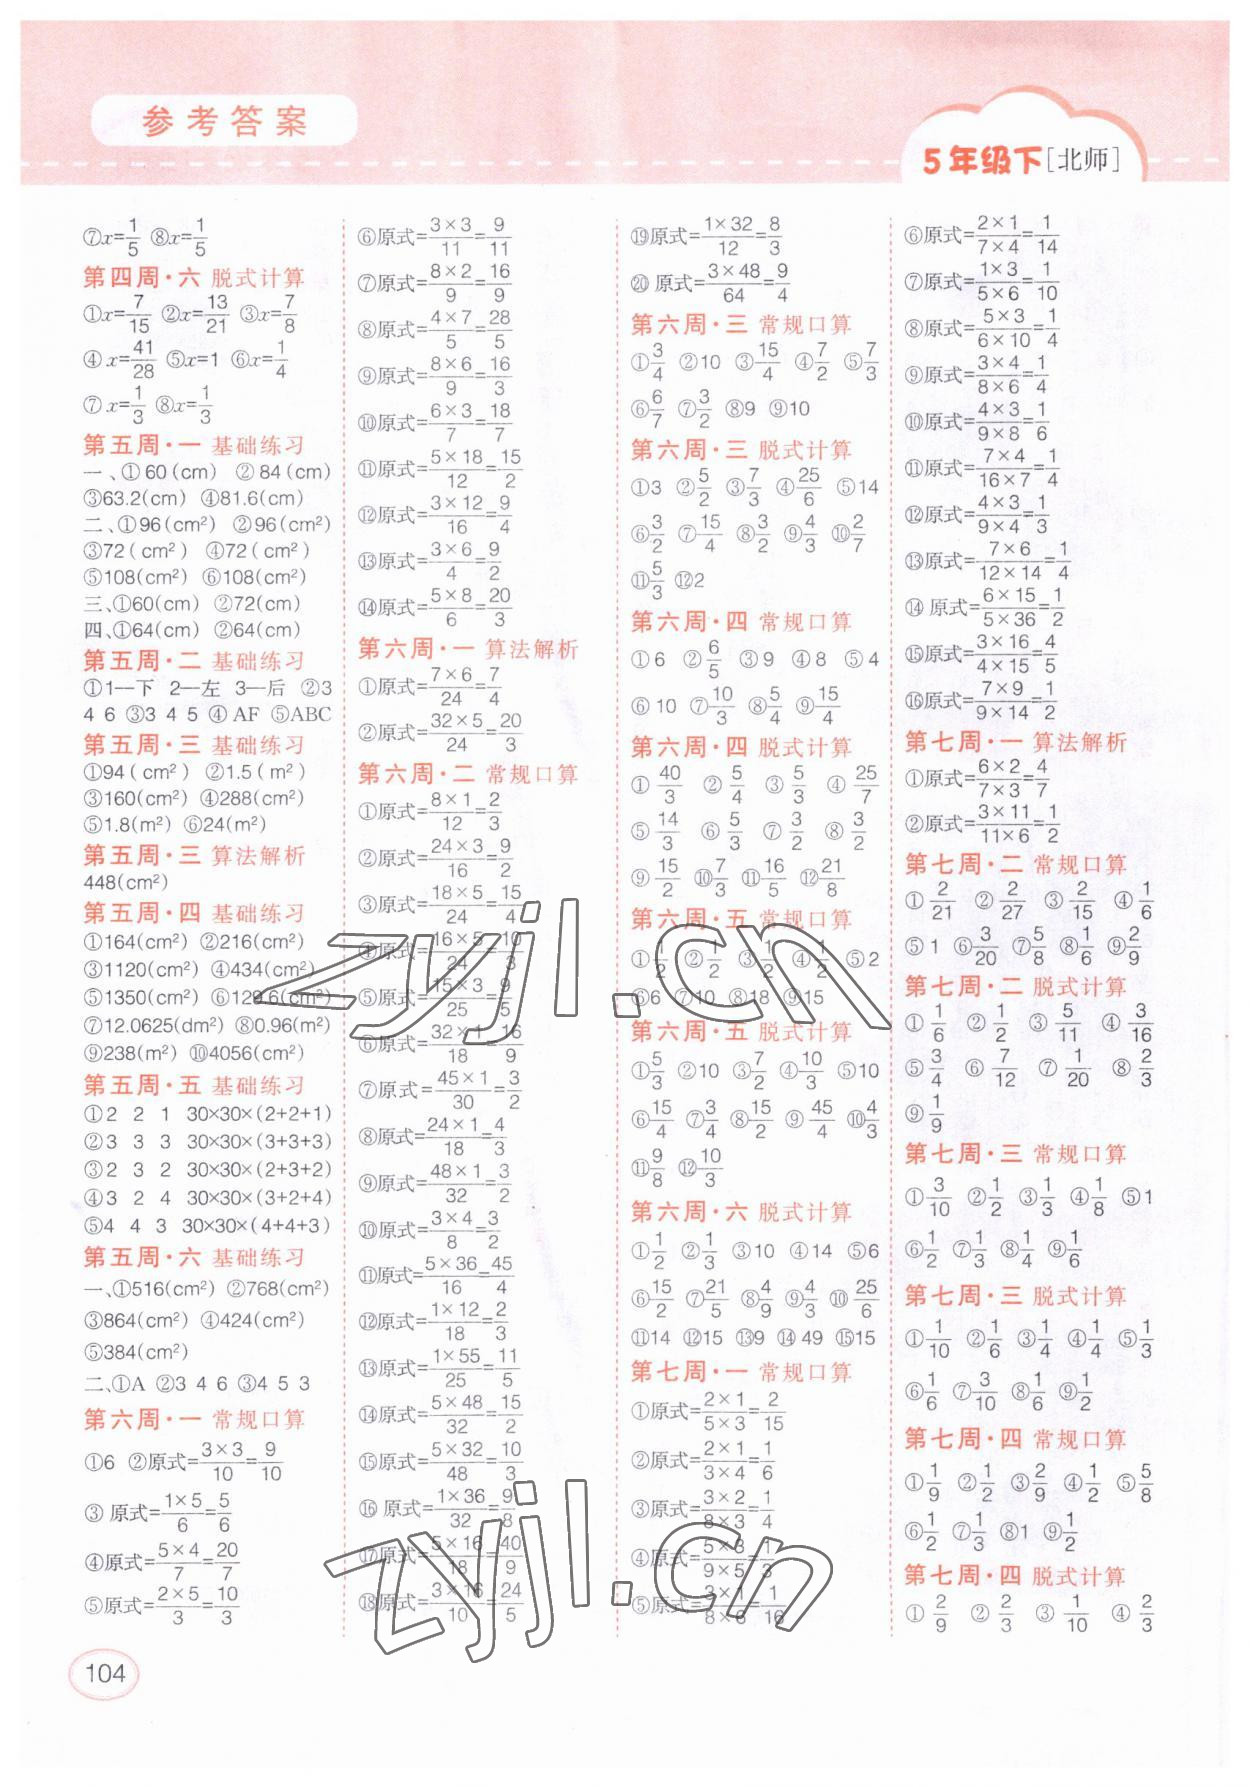 参考答案
5年级下[北师]
⑦x=1/5 ⑧x=1/5
第四周·六 脱式计算
①x=7/15 ②x=13/21 ③x=7/8
④x=41/28 ⑤x=1 ⑥x=1/4
⑦x=1/3 ⑧x=1/3
第五周·一 基础练习
一、①60(cm) ②84(cm)
③63.2(cm) ④81.6(cm)
二、①96(cm²) ②96(cm²)
③72(cm²) ④72(cm²)
⑤108(cm²) ⑥108(cm²)
三、①60(cm) ②72(cm)
四、①64(cm) ②64(cm)
第五周·二 基础练习
①1—下 2—左 3—后 ②3
4 6 ③3 4 5 ④AF ⑤ABC
第五周·三 基础练习
①94(cm²) ②1.5(m²)
③160(cm²) ④288(cm²)
⑤1.8(m²) ⑥24(m²)
第五周·三 算法解析
448(cm²)
第五周·四 基础练习
①164(cm²) ②216(cm²)
③1120(cm²) ④434(cm²)
⑤1350(cm²) ⑥129.6(cm²)
⑦12.0625(dm²) ⑧0.96(m²)
⑨238(m²) ⑩4056(cm²)
第五周·五 基础练习
①2 2 1 30×30×(2+2+1)
②3 3 3 30×30×(3+3+3)
③2 3 2 30×30×(2+3+2)
④3 2 4 30×30×(3+2+4)
⑤4 4 3 30×30×(4+4+3)
第五周·六 基础练习
一、①516(cm²) ②768(cm²)
③864(cm²) ④424(cm²)
⑤384(cm²)
二、①A ②3 4 6 ③4 5 3
第六周·一 常规口算
①6 ②原式=3×3/10=9/10
③原式=1×5/6=5/6
④原式=5×4/7=20/7
⑤原式=2×5/3=10/3
⑥原式=3×3/11=9/11
⑦原式=8×2/9=16/9
⑧原式=4×7/5=28/5
⑨原式=8×6/9=16/3
⑩原式=6×3/7=18/7
⑪原式=5×18/12=15/2
⑫原式=3×12/16=9/4
⑬原式=3×6/4=9/2
⑭原式=5×8/6=20/3
第六周·一 算法解析
①原式=7×6/24=7/4
②原式=32×5/24=20/3
第六周·二 常规口算
①原式=8×1/12=2/3
②原式=24×3/16=9/2
③原式=18×5/24=15/4
④原式=16×5/24=10/3
⑤原式=15×3/25=9/5
⑥原式=32×1/18=16/9
⑦原式=45×1/30=3/2
⑧原式=24×1/18=4/3
⑨原式=48×1/32=3/2
⑩原式=3×4/8=3/2
⑪原式=5×36/16=45/4
⑫原式=1×12/18=2/3
⑬原式=1×55/25=11/5
⑭原式=5×48/32=15/2
⑮原式=5×32/48=10/3
⑯原式=1×36/32=9/8
⑰原式=5×16/18=40/9
⑱原式=3×16/10=24/5
⑲原式=1×32/12=8/3
⑳原式=3×48/64=9/4
第六周·三 常规口算
①3/4 ②10 ③15/4 ④7/2 ⑤7/3
⑥6/7 ⑦3/2 ⑧9 ⑨10
第六周·三 脱式计算
①3 ②5/2 ③7/3 ④25/6 ⑤14
⑥3/2 ⑦15/4 ⑧3/2 ⑨4/3 ⑩2/7
⑪5/3 ⑫2
第六周·四 常规口算
①6 ②6/5 ③9 ④8 ⑤4
⑥10 ⑦10/3 ⑧5/4 ⑨15/4
第六周·四 脱式计算
①40/3 ②5/4 ③5/3 ④25/7
⑤14/3 ⑥5/3 ⑦3/2 ⑧3/2
⑨15/2 ⑩7/3 ⑪16/5 ⑫21/8
第六周·五 常规口算
①1/2 ②1/2 ③1/2 ④1/2 ⑤2
⑥6 ⑦10 ⑧18 ⑨15
第六周·五 脱式计算
①5/3 ②10 ③7/2 ④10/3 ⑤10
⑥15/4 ⑦3/4 ⑧15/2 ⑨45/4 ⑩4/3
⑪9/8 ⑫10/3
第六周·六 脱式计算
①1/2 ②1/3 ③10 ④14 ⑤6
⑥15/2 ⑦21/5 ⑧4/9 ⑨4/3 ⑩25/6
⑪14 ⑫15 ⑬9 ⑭49 ⑮15
第七周·一 常规口算
①原式=2×1/5×3=2/15
②原式=2×1/3×4=1/6
③原式=3×2/8×3=1/4
④原式=5×3/9×5=1/3
⑤原式=3×1/8×6=1/16
⑥原式=2×1/7×4=1/14
⑦原式=1×3/5×6=1/10
⑧原式=5×3/6×10=1/4
⑨原式=3×4/8×6=1/4
⑩原式=4×3/9×8=1/6
⑪原式=7×4/16×7=1/4
⑫原式=4×3/9×4=1/3
⑬原式=7×6/12×14=1/4
⑭原式=6×15/5×36=1/2
⑮原式=3×16/4×15=4/5
⑯原式=7×9/9×14=1/2
第七周·一 算法解析
①原式=6×2/7×3=4/7
②原式=3×11/11×6=1/2
第七周·二 常规口算
①2/21 ②2/27 ③2/15 ④1/6
⑤1 ⑥3/20 ⑦5/8 ⑧1/6 ⑨2/9
第七周·二 脱式计算
①1/6 ②1/2 ③5/11 ④3/16
⑤3/4 ⑥7/12 ⑦1/20 ⑧2/3
⑨1/9
第七周·三 常规口算
①3/10 ②1/2 ③1/3 ④1/8 ⑤1
⑥1/2 ⑦1/3 ⑧1/4 ⑨1/6
第七周·三 脱式计算
①1/10 ②1/6 ③1/4 ④1/4 ⑤1/3
⑥1/6 ⑦3/10 ⑧1/6 ⑨1/2
第七周·四 常规口算
①1/9 ②1/2 ③2/9 ④1/2 ⑤5/8
⑥1/2 ⑦1/3 ⑧1 ⑨1/2
第七周·四 脱式计算
①2/9 ②2/3 ③1/10 ④2/3
104
zyjl.cn
zyjl.cn